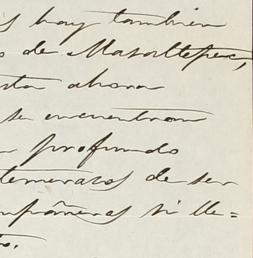 s hay tambien
s de Masaltepec,
ta ahora
se encuentran
profundo
temerosos de ser
mpañeras si lle=
to.